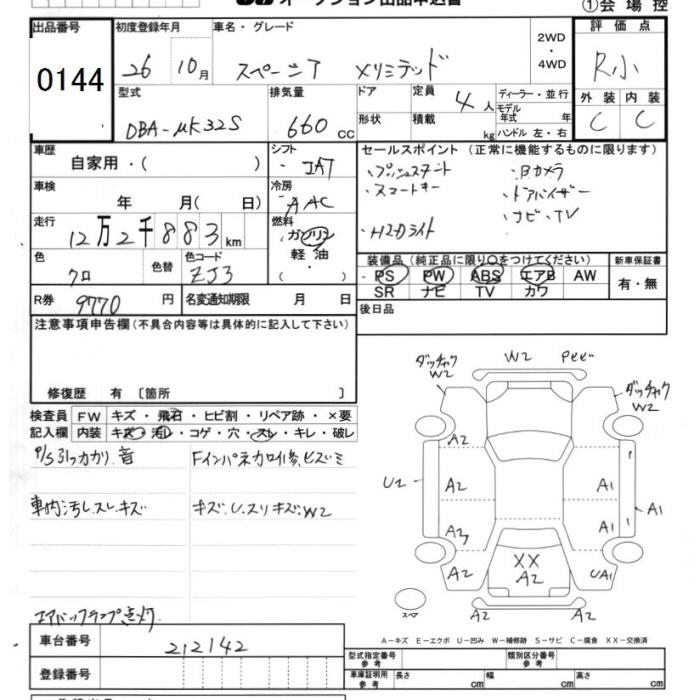 オークション出品申込書
①会場控
出品番号 初度登録年月 車名・グレード 評価点
0144 26 10月 スペーシア Xリミテッド 2WD・4WD R小
型式 排気量 ドア 定員 4人 ディーラー・並行 外装 内装
モデル年式 年
DBA-MK32S 660cc 形状 積載 kg ハンドル 左・右 C C
車歴 シフト セールスポイント(正常に機能するものに限ります)
自家用・( ) ・IAT ・プッシュスタート ・Bカメラ
車検 冷房 ・スマートキー ・ドアバイザー
年 月( 日) AAC ・ナビ・TV
走行 燃料 ・HIDライト
12万2千883km ・ガソリン
色 色替 色コード 軽油
クロ ZJ3 ・( )
装備品(純正品に限り○をつけてください) 新車保証書
PS PW ABS エアB AW 有・無
SR ナビ TV カワ
R券 9770円 名変通知期限 月 日 後日品
注意事項申告欄(不具合内容等は具体的に記入して下さい)
修復歴 有〔箇所 〕
検査員記入欄 FW キズ・飛石・ヒビ割・リペア跡・×要
内装 キズ・汚レ・コゲ・穴・スレ・キレ・破レ
P/S引っカカリ、音 Fインパネカロ修、ビズミ
車内汚レ、スレ、キズ キズ、U、スリキズ、W2
エアバックランプ点灯
ダッチャク W2 W2
ダッチャク W2
A2
U2 A2 A1 A1
A2
A2 XX A2 UA1
スペア A2
A-キズ E-エクボ U-凹み W-補修跡 S-サビ C-腐食 XX-交換済
車台番号 212142
登録番号
型式指定番号 参考 類別区分番号 参考
車庫証明用 参考 長さ cm 幅 cm 高さ cm